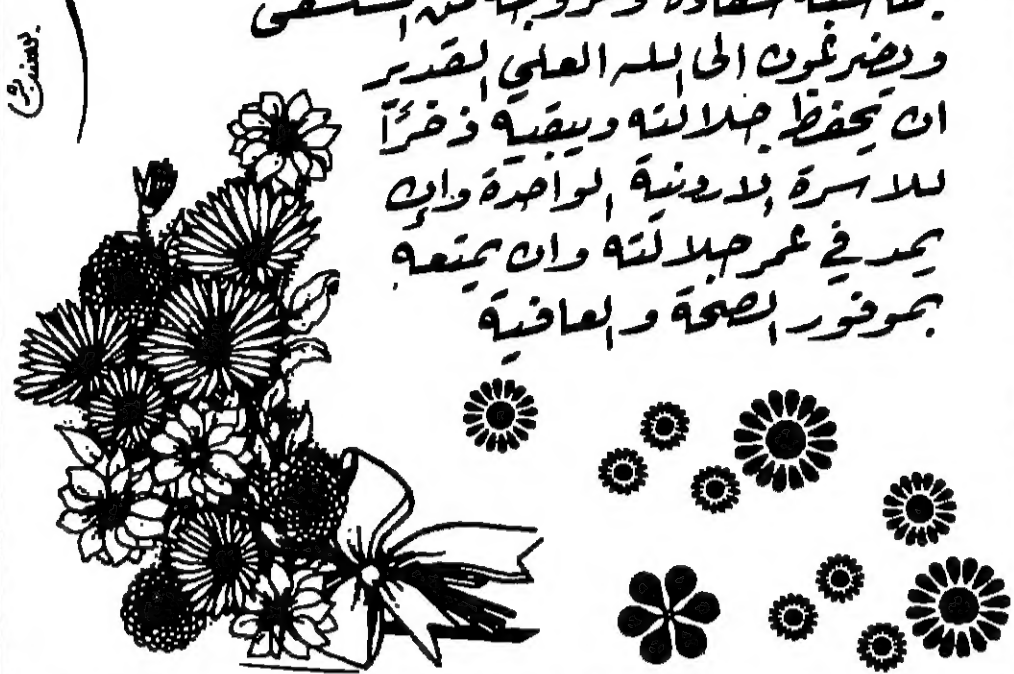 بمناسبة شفاءه وخروجه من المستشفى
ويضرعون الى الله العلي القدير
ان يحفظ جلالته ويبقيه ذخرًا
للاسرة الاردنية الواحدة وان
يمد في عمر جلالته وان يمتعه
بموفور الصحة والعافية